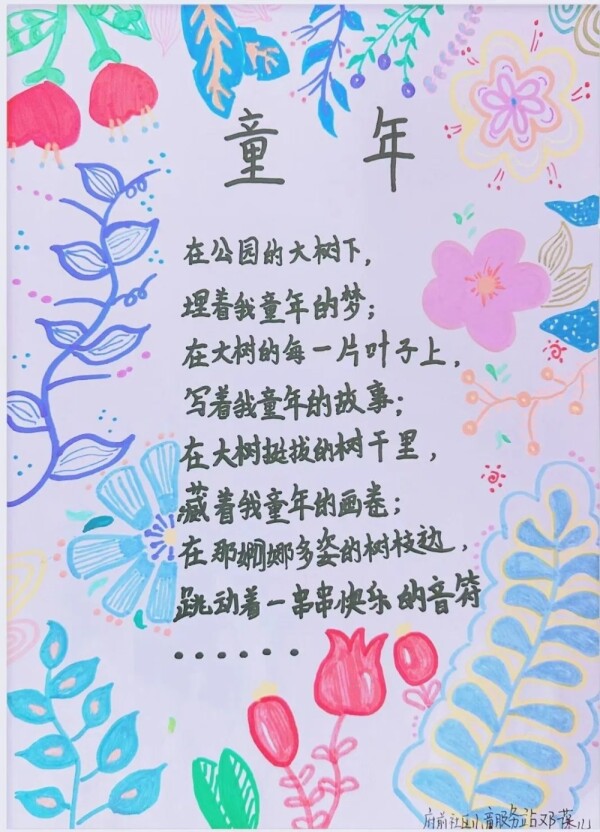 童年
在公园的大树下，
埋着我童年的梦；
在大树的每一片叶子上，
写着我童年的故事；
在大树挺拔的树干里，
藏着我童年的画卷；
在那婀娜多姿的树枝边，
跳动着一串串快乐的音符
......
府前社区儿童服务站邓葆儿